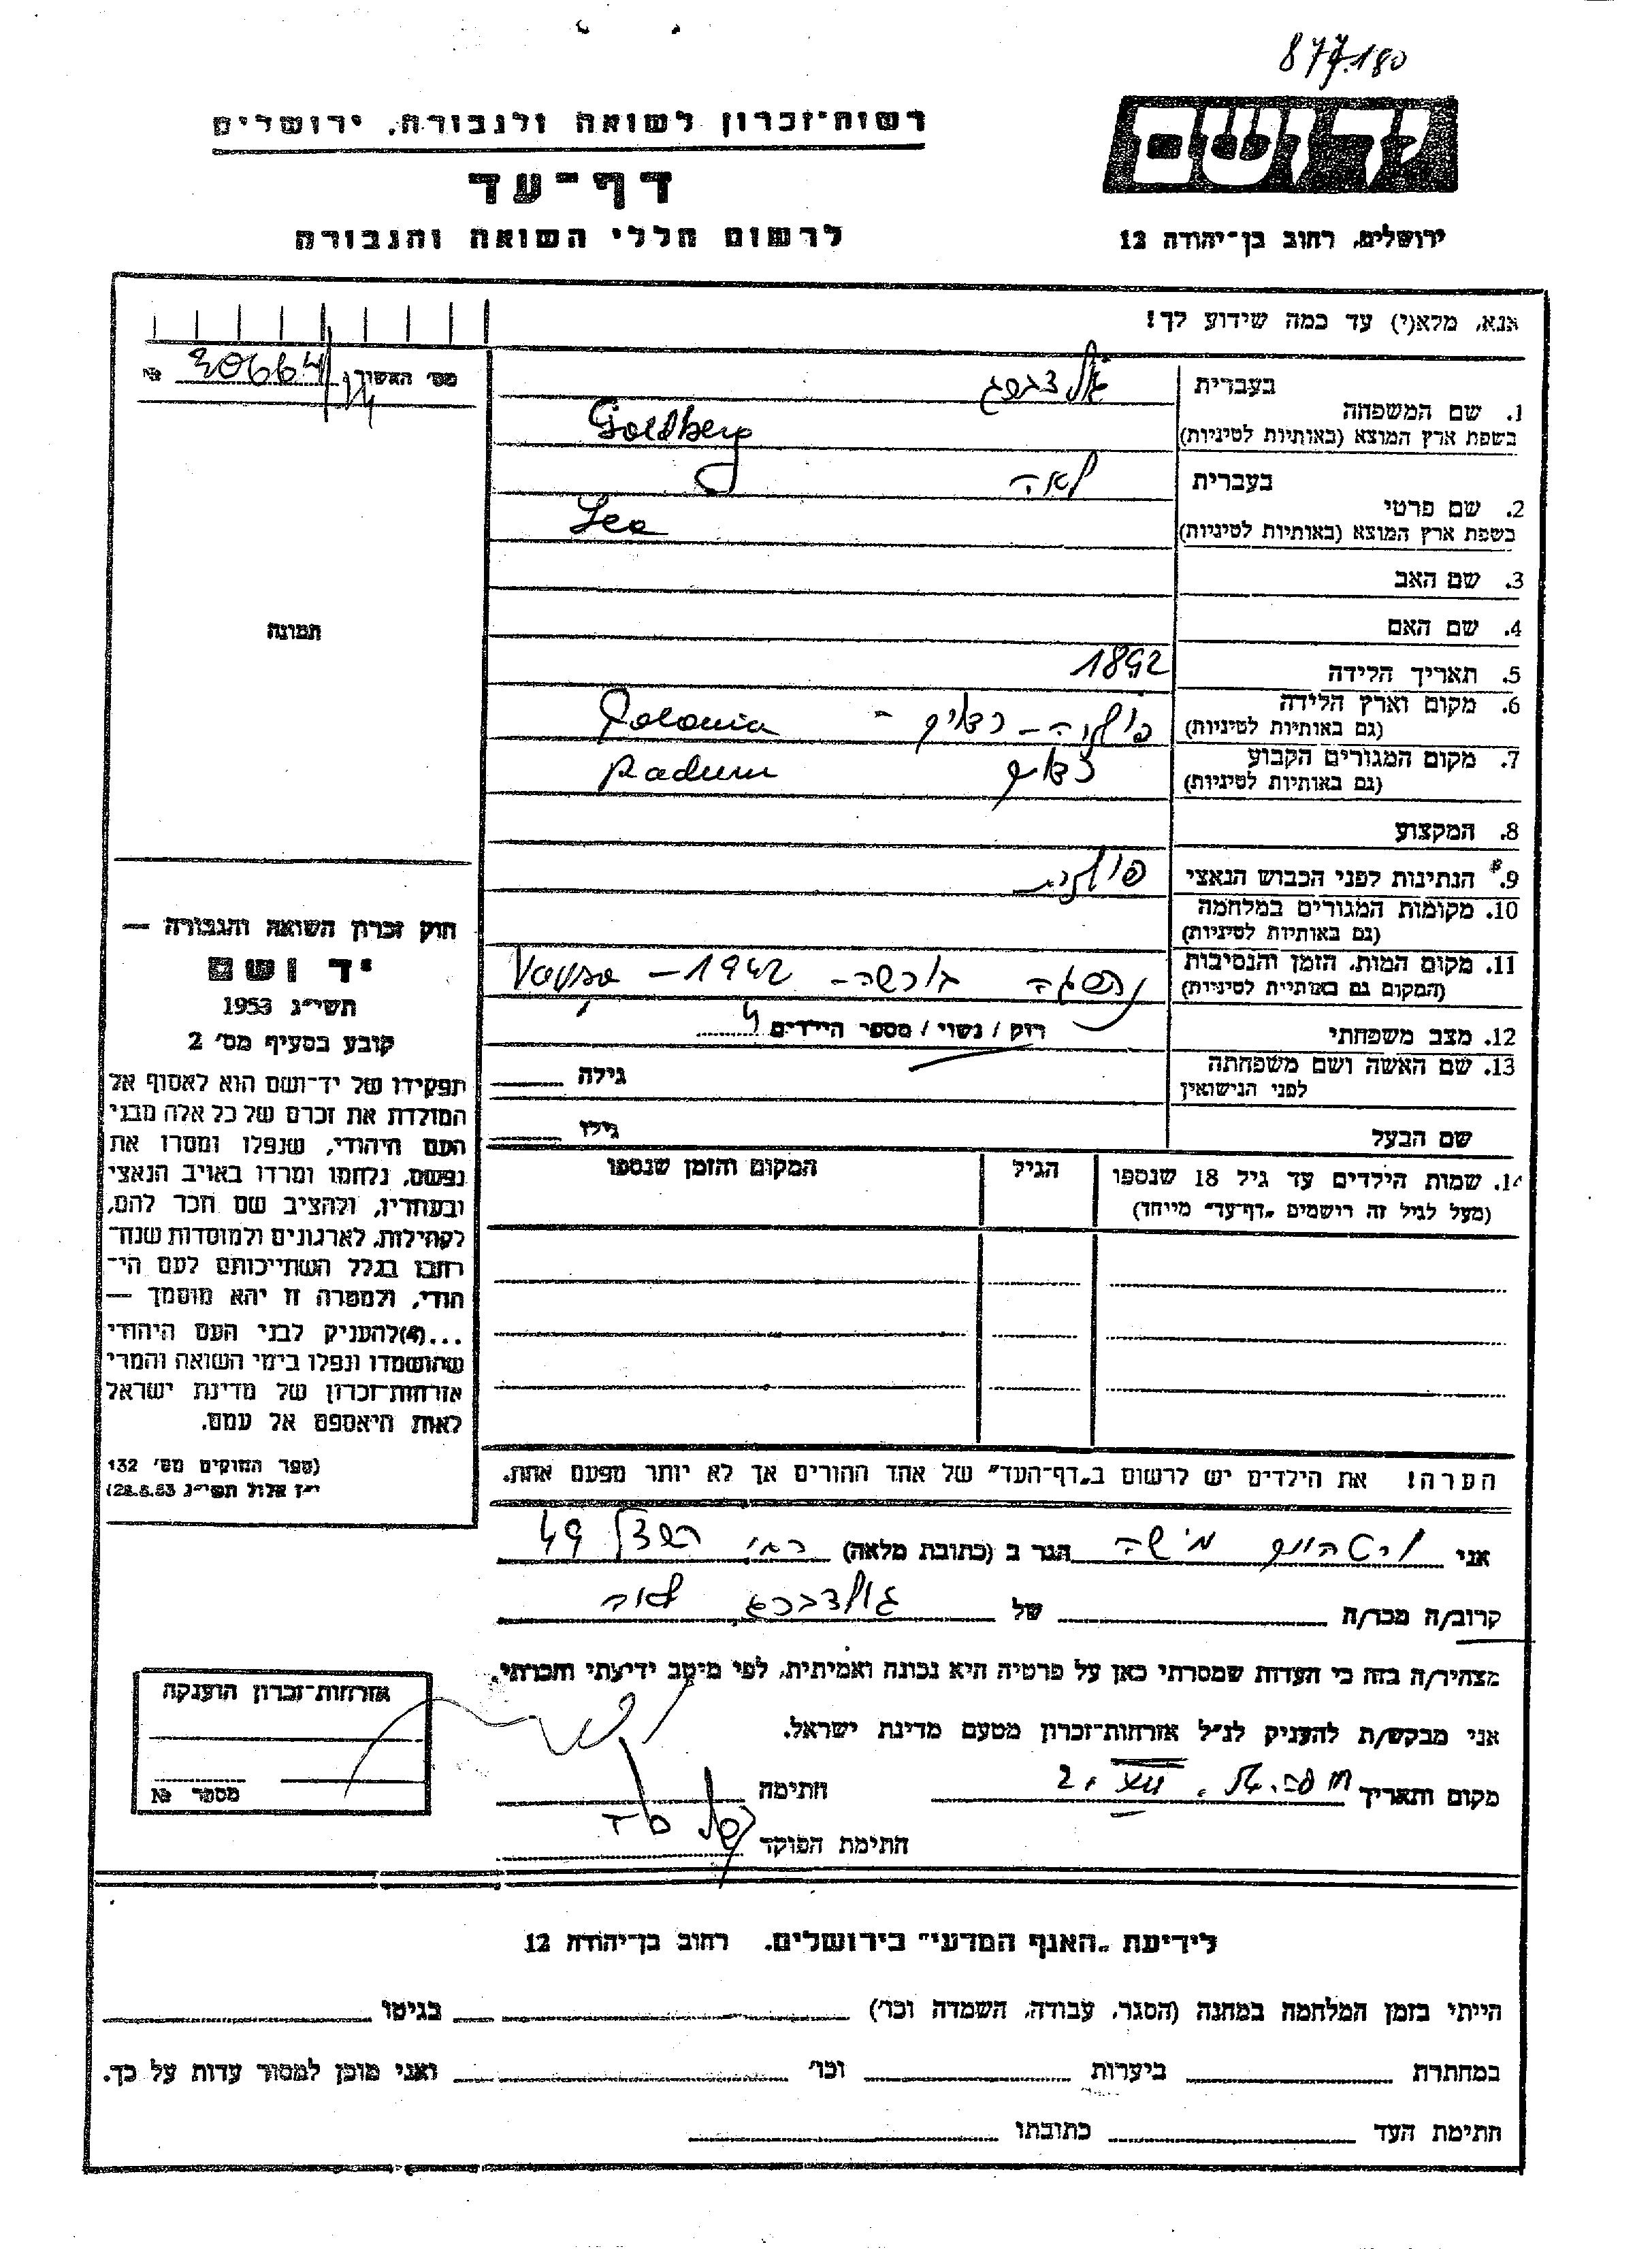 877.180
רשות־זכרון לשואה ולגבורה, ירושלים
יד ושם
דף־עד
לרשום חללי השואה והגבורה
ירושלים, רחוב בן־יהודה 12
אנא, מלא(י) עד כמה שידוע לך!
מס׳ האשור №
בעברית
1. שם המשפחה
בשפת ארץ המוצא (באותיות לטיניות) Goldberg
בעברית לאה
2. שם פרטי
בשפת ארץ המוצא (באותיות לטיניות) Lea
3. שם האב
4. שם האם
5. תאריך הלידה 1892
6. מקום וארץ הלידה
(גם באותיות לטיניות) פולניה – Polonia
7. מקום המגורים הקבוע
(גם באותיות לטיניות) Radum
8. המקצוע
9. הנתינות לפני הכבוש הנאצי פולנית
10. מקומות המגורים במלחמה
(גם באותיות לטיניות)
11. מקום המות, הזמן והנסיבות
(המקום גם באותיות לטיניות) נהרגה בורשה – 1942 –
12. מצב משפחתי רווק / נשוי / מספר הילדים 4
13. שם האשה ושם משפחתה
לפני הנישואין גילה
שם הבעל גילו
14. שמות הילדים עד גיל 18 שנספו הגיל המקום והזמן שנספו
(מעל לגיל זה רישמים „דף־עד״ מיוחד)
הערה! את הילדים יש לרשום ב„דף־העד״ של אחד ההורים אך לא יותר מפעם אחת.
תמונה
חוק זכרון השואה והגבורה —
יד ושם
תשי״ג 1953
קובע בסעיף מס׳ 2
תפקידו של יד־ושם הוא לאסוף אל
המולדת את זכרם של כל אלה מבני
העם היהודי, שנפלו ומסרו את
נפשם, נלחמו ומרדו באויב הנאצי
ובעוזריו, ולהציב שם וזכר להם,
לקהילות, לארגונים ולמוסדות שנח־
רבו בגלל השתייכותם לעם הי־
הודי, ולמטרה זו יהא מוסמך —
...(4) להעניק לבני העם היהודי
שהושמדו ונפלו בימי השואה והמרי
אזרחות־זכרון של מדינת ישראל
לאות היאספם אל עמם.
(ספר החוקים מס׳ 132
י״ז אלול תשי״ג 28.8.53)
אני משה הגר ב (כתובת מלאה) 49
קרוב/ה מכר/ה של גולדברג לאה
מצהיר/ה בזה כי העדות שמסרתי כאן על פרטיה היא נכונה ואמיתית, לפי מיטב ידיעתי והכרתי.
אני מבקש/ת להעניק לנ״ל אזרחות־זכרון מטעם מדינת ישראל.
מקום ותאריך חתימה
חתימת הפוקד
אזרחות־זכרון הוענקה
מספר №
לידיעת „האגף המדעי״ בירושלים, רחוב בן־יהודה 12
הייתי בזמן המלחמה במחנה (הסגר, עבודה, השמדה וכו׳) בגיטו
במחתרת ביערות וכו׳ ואני מוכן למסור עדות על כך.
חתימת העד כתובתו